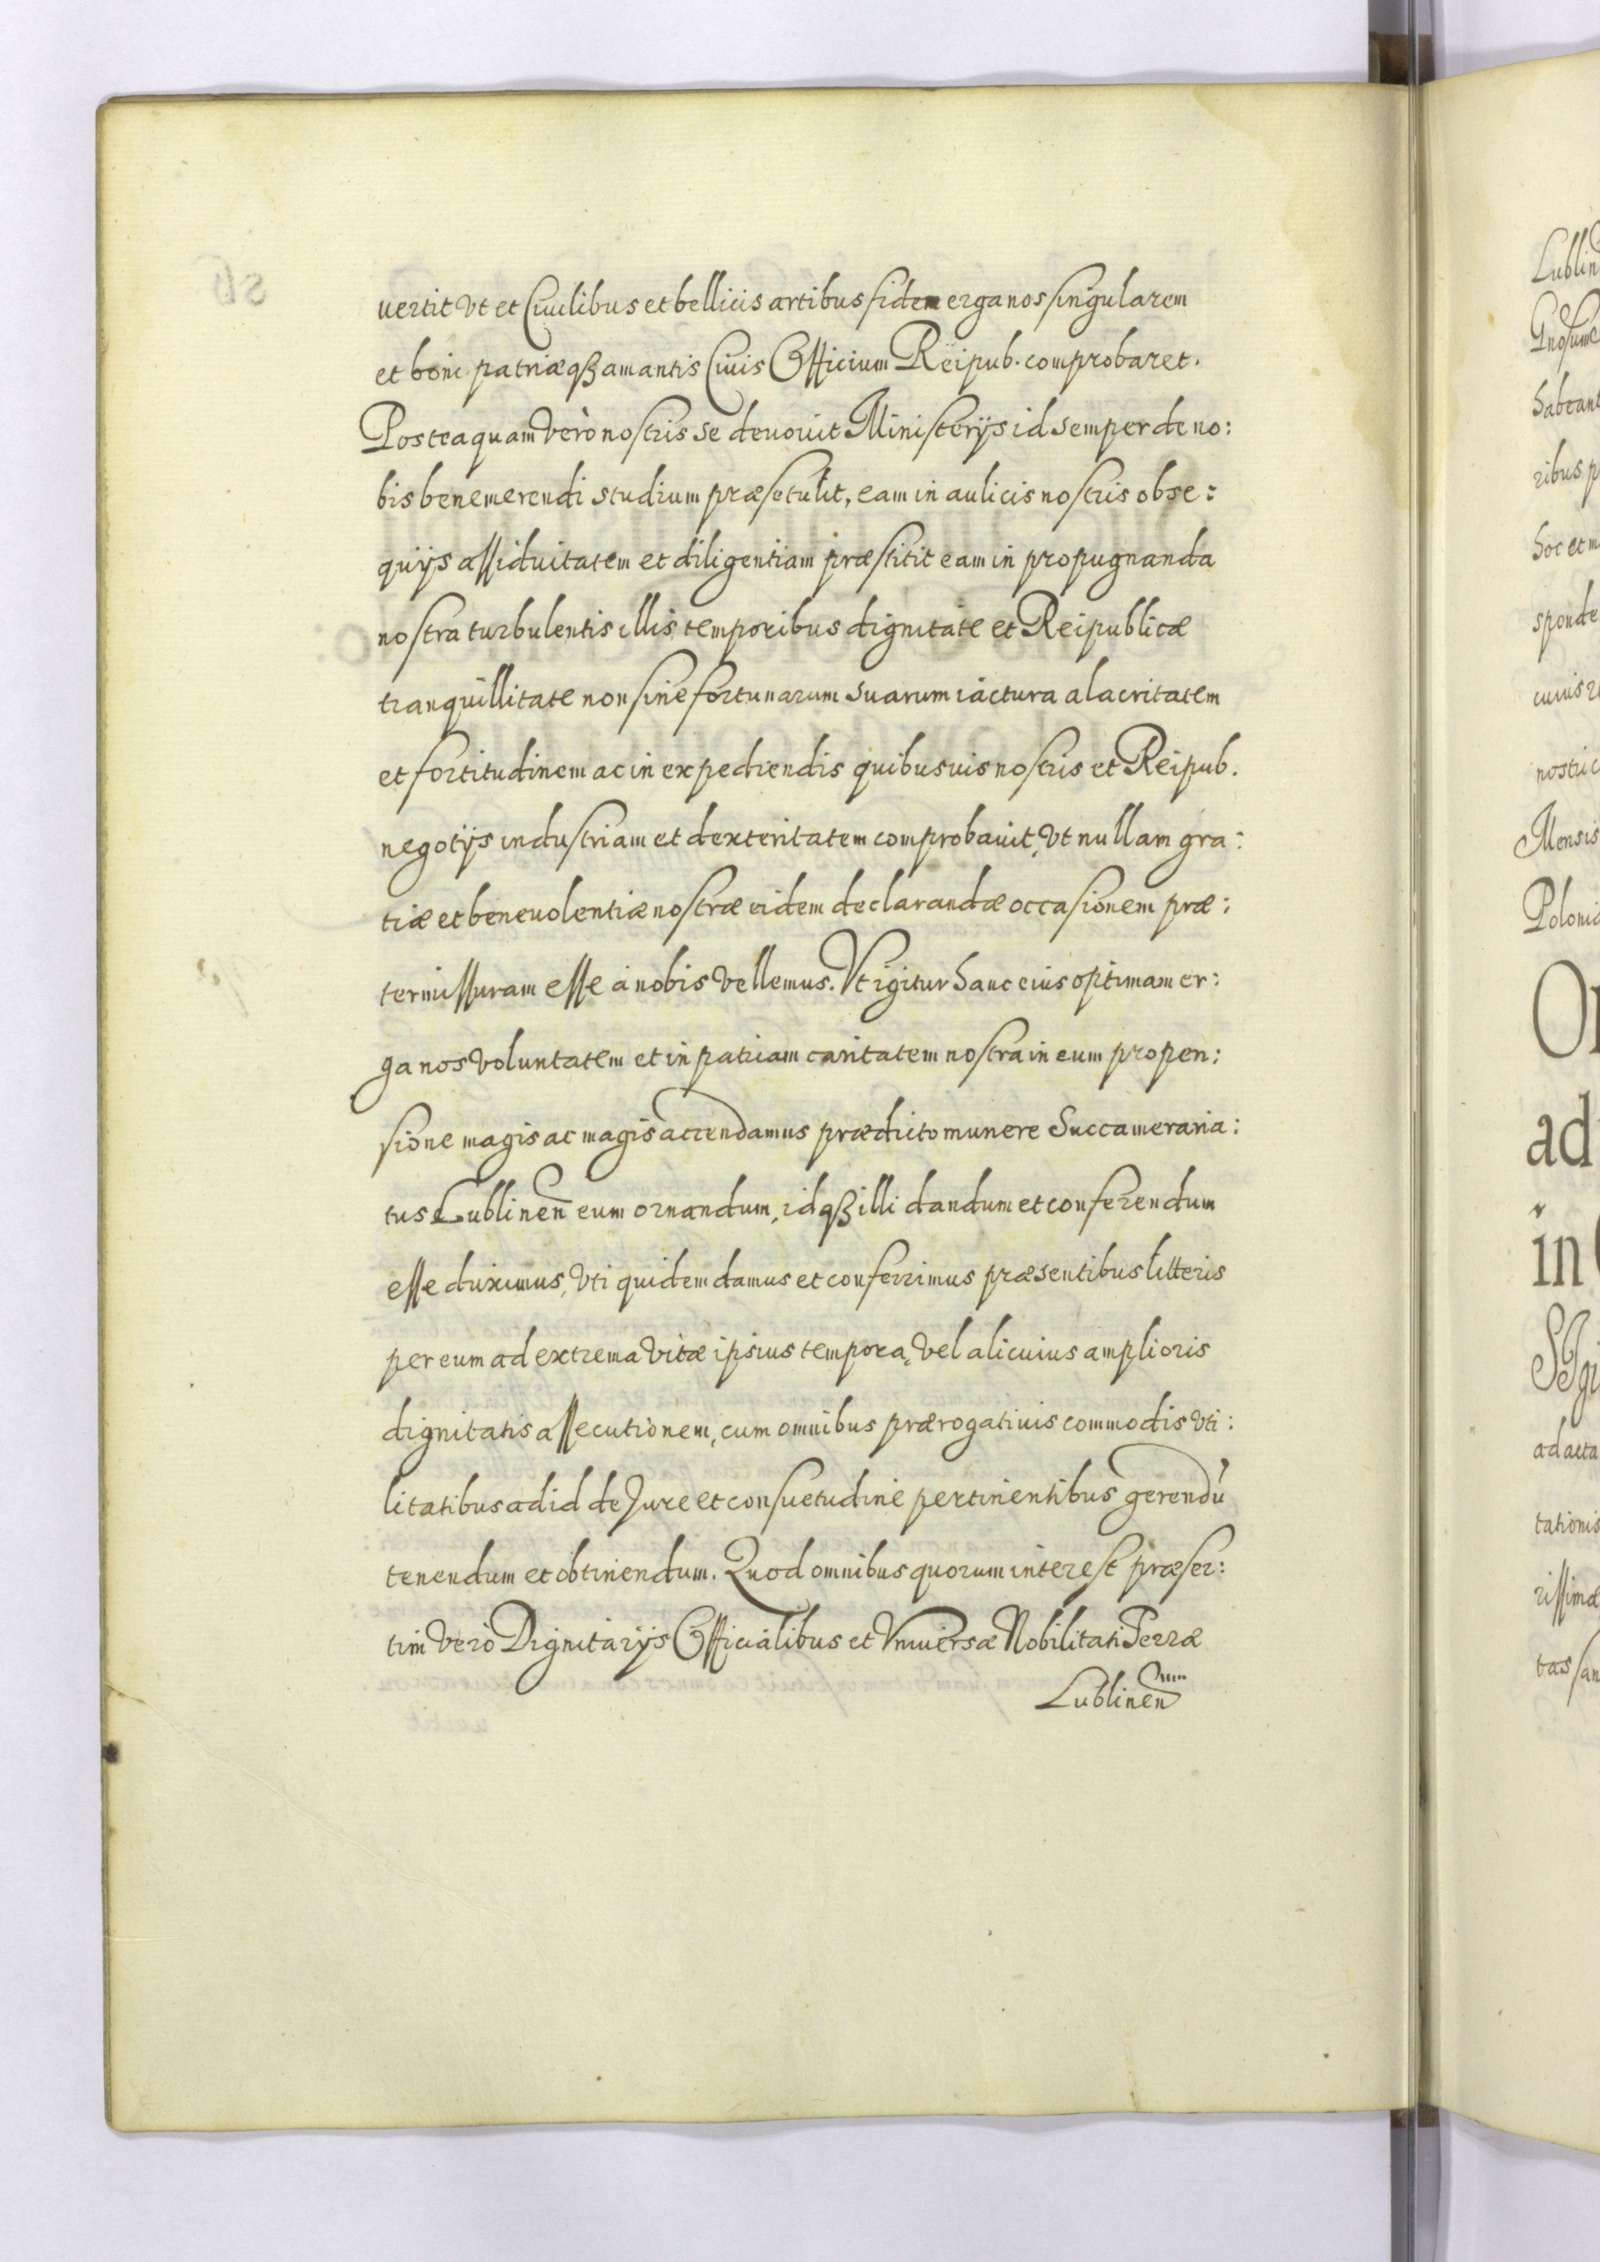 uertit Vt et Ciuilibus et bellicis artibus fidem erga nos singularem
et boni patriæq₃ amantis Ciuis Officium Reipub. comprobaret.
Posteaquam Verò nostris se deuouit Ministerijs id semper de no:
bis benemerendi studium præsetulit, eam in aulicis nostris obse:
quijs assiduitatem et diligentiam præstitit eam in propugnanda
nostra turbulentis illis temporibus dignitate et Reipublicæ
tranquillitate non sine fortunarum suarum iactura alacritatem
et fortitudinem ac in expediendis quibusuis nostris et Reipub.
negotijs industriam et dexteritatem comprobauit, Vt nullam gra:
tiæ et beneuolentiæ nostræ eidem declarandæ occasionem præ:
termissuram esse à nobis Vellemus. Vt igitur hanc eius optimam er:
ga nos Voluntatem et in patriam caritatem nostra in eum propen:
sione magis ac magis accendamus prædicto munere Succameraria:
tus Lublinen̄ eum ornandum, idq₃ illi dandum et conferendum
esse duximus, Vti quidem damus et conferrimus præsentibus litteris
per eum ad extrema Vitæ ipsius tempora, Vel alicuius amplioris
dignitatis assecutionem, cum omnibus prærogatiuis commodis Vti:
litatibus ad id de Jure et consuetudine pertinentibus gerendū
tenendum et obtinendum. Quod omnibus quorum interest præser:
tim Vero Dignitarijs Officialibus et Vniuersæ Nobilitati Terræ
Lublinen̄
Lublin
habeant
ribus p
hoc et m
sponde
cuius re
nostri c
Mensis
Polonia
ad
in
ad acta
tationis
rissimæ
tas san